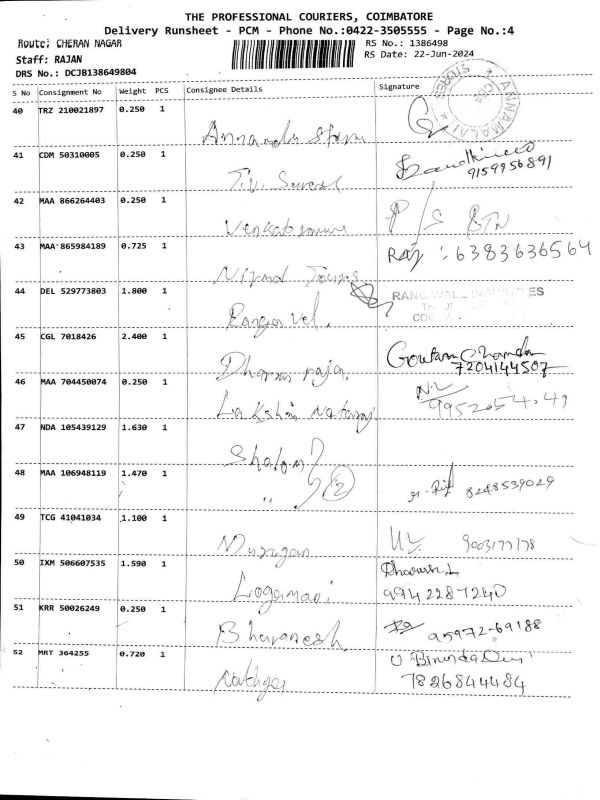 THE PROFESSIONAL COURIERS, COIMBATORE
Delivery Runsheet - PCM - Phone No.:0422-3505555 - Page No.:4
Route: CHERAN NAGAR
RS No.: 1386498
Staff: RAJAN
RS Date: 22-Jun-2024
DRS No.: DCJB138649804
S No Consignment No Weight PCS Consignee Details Signature
40 TRZ 210021897 0.250 1
ANNAMALAI
41 CDM 50310005 0.250 1 T.V. Suresh
9159956891
42 MAA 866264403 0.250 1 P/S BTN
43 MAA 865984189 0.725 1 Raj : 6383636564
44 DEL 529773803 1.800 1 Rangavel.
45 CGL 7018426 2.400 1 Dharmaraja. Goutam Chandra
7204144507
46 MAA 704450074 0.250 1
47 NDA 105439129 1.630 1 Shalom
48 MAA 106948119 1.470 1 " 2 8248539029
49 TCG 41041034 1.100 1 Murugan
50 IXM 506607535 1.590 1 Logamani
9942287240
51 KRR 50026249 0.250 1 Bharanesh 95972-69188
52 MRT 364255 0.720 1
7826844484